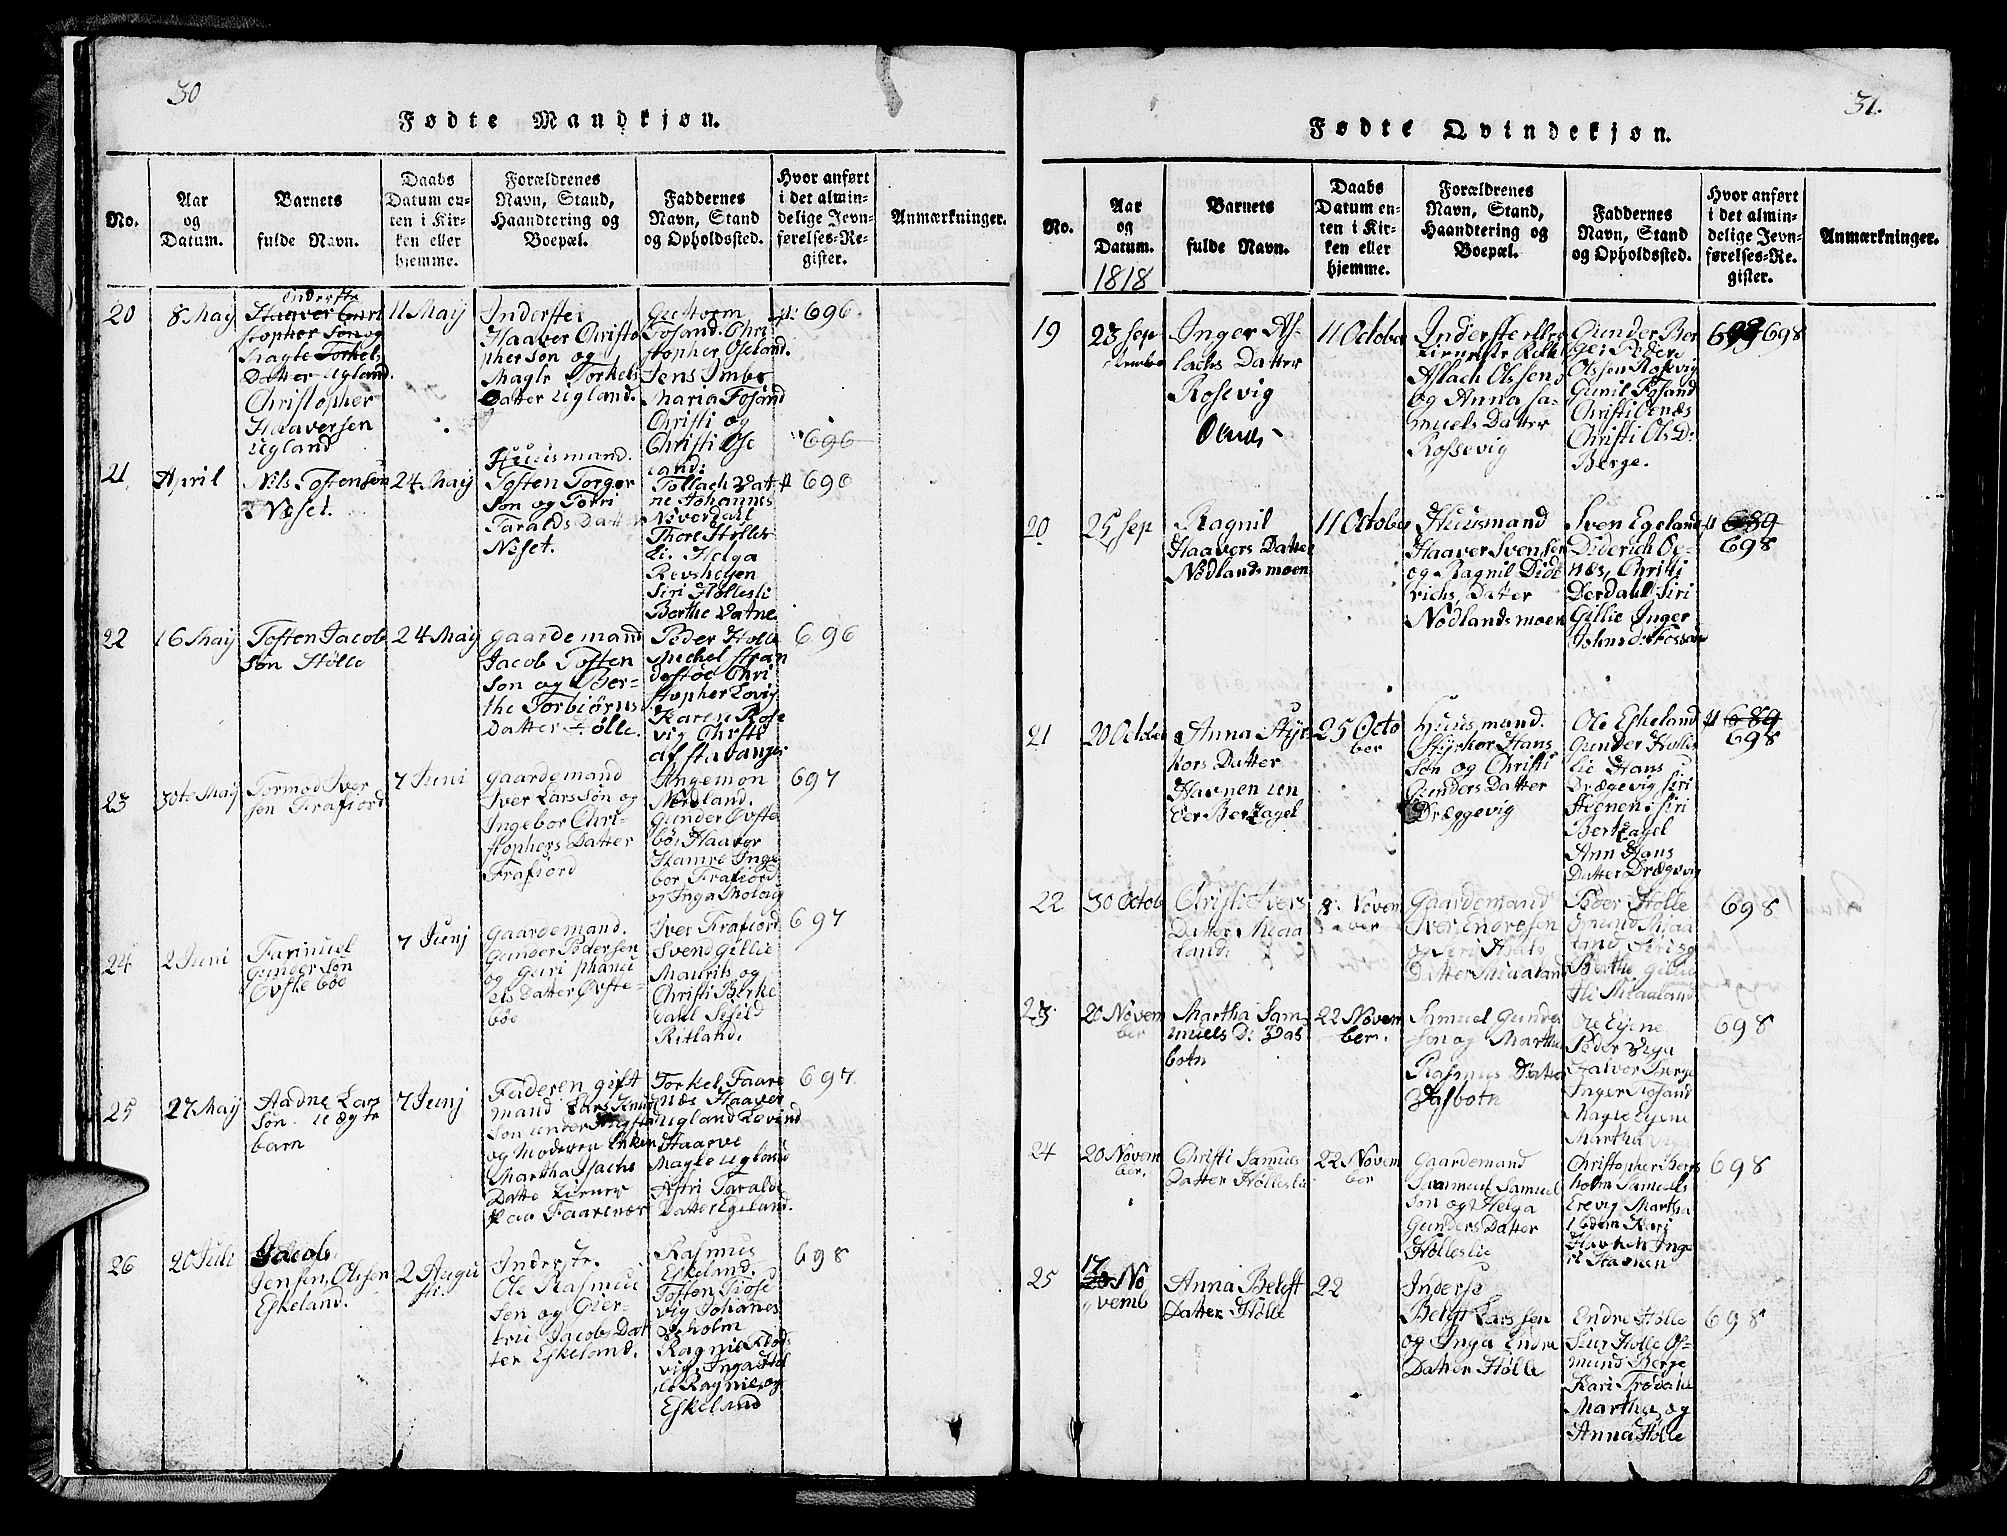 30
Fødte Mandkjøn.
No.
Aar
og
Datum.
Barnets
fulde Navn.
Daabs
Datum en-
ten i Kir-
ken eller
hjemme.
Forældrenes
Navn, Stand,
Haandtering og
Boepæl.
Faddernes
Navn, Stand
og Opholdssted.
Hvor anført
i det almin-
delige Jevn-
førelses-Re-
gister.
Anmærkninger.
20
8 May
Haaver Chri
stopher Søn og
Magle Torkels
Datter Ugland.
Christopher
Haaversen
Ugland
11 May
Inderster
Haaver Christo
pher Søn og
Magle Torkels
Datter Ugland.
Fosand. Chri
stopher Oseland.
Jens Imbs
Maria Fosand
Christi og
Christi Ose
land:
696
696
21
April
Nils Tostensøn
Neset.
24 May
Huusmand.
Tosten Torger
Søn og Torri
Taralds Datter
Neset.
Tollach Vat
ne Johannes
Niverdall
Thore Hølles
li. Helga
Revsheyen
Siri Høllesli
Berthe Vatne
696
22
16 May
Tosten Jacob
Søn Hølle
24 May
Gaardemand
Jacob Tosten
Søn og Ber-
the Torbiørns
Datter Hølle.
Peder Holle
Michel Stran
destøe Chri
stopher Lovig
Karen Rose
vig Christi
af Stavanger
696
23
30te May
Tormod Iver
sen Frafiord
7 Juni
Gaardemand
Iver Larssøn og
Ingebor Chri-
stophers Datter
Frafiord
Nødland.
Gunder Øvste
bøe Haaver
Hamre Inge
bor Frafiord
og Inga
697
24
2 Juni
Gunder Søn
Øvstebøe
7 Junj
Gaardemand.
Gunder Pedersen
og Guri
els Datter Øvste-
bøe
Iver Frafiord
Svend Gillie
Maurits og
Christi Birke
dall Sesild
Ritland.
697
25
27 May
Aadne Lars
Søn. Uægte
barn
7 Junj
Faderen gift
mand Lars Knud
Søn
og Moderen Enken
Martha Isachs
Datte
paa Faarenæs
Torkel Faare
næs Haaver
Ugland Levind
Haarve
Magle Ugland
Astri Taralds
Datter Egeland.
697
26
20 Juli
Jacob
Jensen, Olssen
Eskeland.
2 Augu
sti.
Inderste.
Ole Rasmus
Sen og Gier-
tru Jacobs Dat
ter Eskeland.
Rasmus
Eskeland.
Tosten Tiøse
vig Johanes
Leholm
Ragnil Riø
vig, Inga
Ragnil, og
Eskeland
698
31.
Fødte Qvindekjøn.
No.
Aar
og
Datum.
1818
Barnets
fulde Navn.
Daabs
Datum en-
ten i Kir-
ken eller
hjemme.
Forældrenes
Navn, Stand,
Haandtering og
Boepæl.
Faddernes
Navn, Stand
og Opholdssted.
Hvor anført
i det almin-
delige Jevn-
førelses-Re-
gister.
Anmærkninger.
19
23 Sep
tembe
Inger As-
lachs Datter
Rossvig
11 October
Inderste eller
Aslach Olssen
og Anna Sa-
muels Datter
Rossevig
Gunder Ber
ge: Peder
Olssen Rosevig
Gunil Fosand
Christi Oenæs
Christi Ols D:
Berge.
698
20
25 Sep
Ragnil
Haavers Datter
Nødlandsmoen
11 October
Huusmand
Haaver Svensen
og Ragnil Dide
richs, Datter
Nødlandsmoen
Sven Egeland
Diderich Oe-
næs, Christi
Derdahl Siri
Gillie Inger
Johns d: Fossan
689
698
21
20 October
Anna Styr
kors Datter
Havnen un
der Bertzagel
25 Octo
ber
Huusmand.
Styrkor Hans
Søn og Christi
Gunders Datter
Dræggevig
Ole Eskeland
Gunder Holles
lie Hans
Drægevig Siri
Heenen: Siri
Bertzagel
Ann Hans
Datter Drægevig
689
698
22
30 Octob
Christi Ivers
Datter Miaa
land.
8. Novem
ber
Gaardemand
Iver Endresen
og Seri Asels
Datter Miaaland
Peder Hølle
Omund Miaa
land Siri og
Berthe Gillie
Eli Miaaland
698
23
20 Novem
ber
Martha Sam
muels D: Dals
botn
22 Novem
ber.
Samuel Gunder
Søn og Martha
Rasmus Datter
Dalsbotn
Ole Eyene
Peder Vega
Halvor Berge
Inger Fosand
Magle Eyene
Martha Vega
698
24
20 Novem
ber.
Christi Samuels
Datter Hølleslie
22 Novem
ber
Gaardemand
Sammuel Samuel
Søn og Helga
Gunders Datter
Hølleslie
Christopher Bers
holm Samuels
Erevig Martha
ibdem Kari
Inge
Havnen
698
25
17
20 No
vemb
Anna Belest
Datter Hølle
22
Inderse
Belest Larssen
og Inga Endre
Datter Hølle
Endre Hølle
Siur Hølle Os-
mund Berge
Kari Trodahl
Martha og
Anna Hølle
698